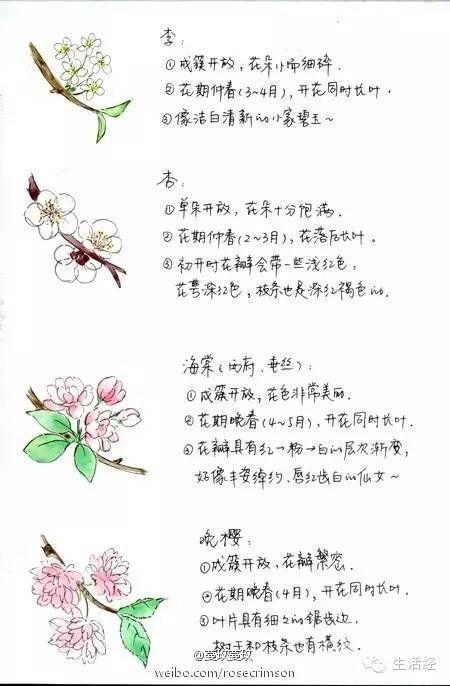 李:
①成簇开放,花朵小而细碎.
②花期仲春(3~4月),开花同时长叶.
③像洁白清新的小家碧玉~
杏:
①单朵开放,花朵十分饱满.
②花期仲春(2~3月),花落后长叶。
③初开时花瓣会带一些浅红色,
花萼深红色,枝条也是深红褐色的.
海棠(西府、垂丝):
①成簇开放,花色非常美丽.
②花期晚春(4~5月),开花同时长叶.
③花瓣具有红→粉→白的层次渐变,
好像丰姿绰约、唇红齿白的仙女~
晚樱:
①成簇开放,花瓣繁密.
②花期晚春(4月),开花同时长叶
③叶片具有细细的锯齿边.
树干和枝条也有横纹.
@蔓玫蔓玫
weibo.com/rosecrimson
生活经